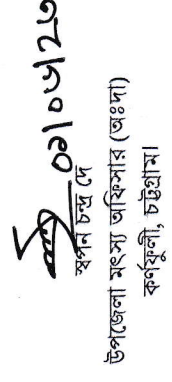 ০৯/০৬/২৩
স্বপন চন্দ্র দে
উপজেলা মৎস্য অফিসার (অঃদা)
কর্ণফুলী, চট্টগ্রাম।